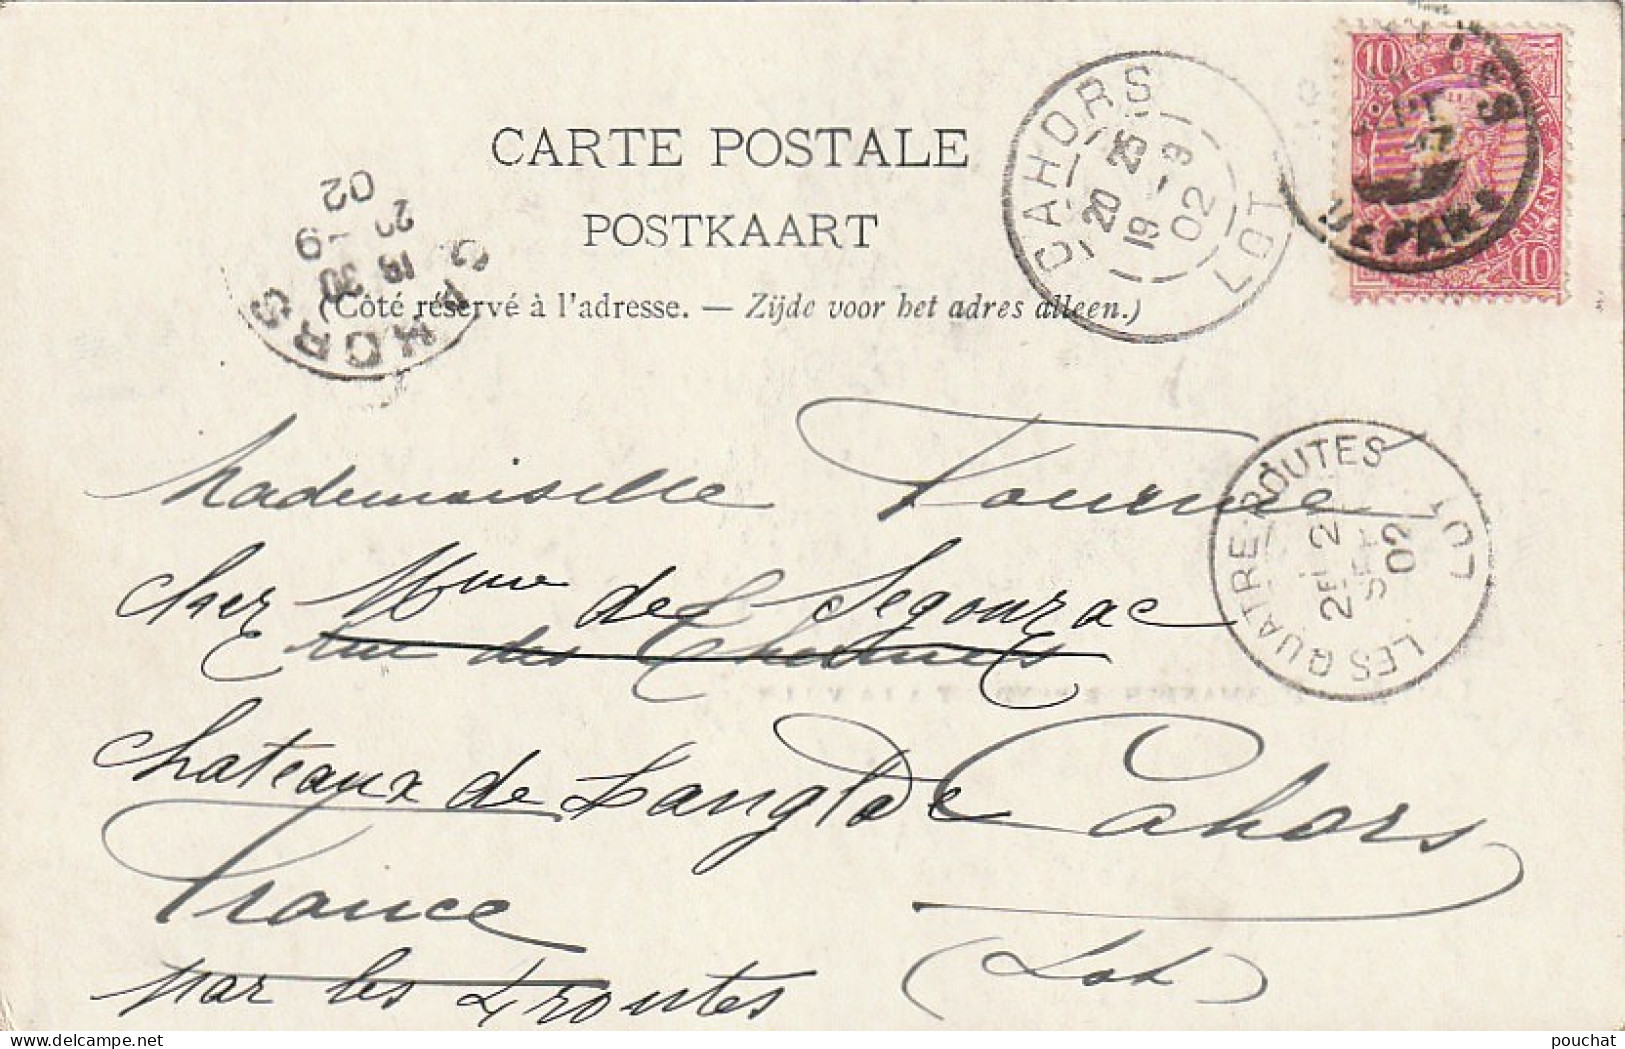 CARTE POSTALE
POSTKAART
(Côté réservé à l'adresse. — Zijde voor het adres alleen.)
CAHORS
20 25
19 - 9
02
LOT
CAHORS
18 30
9
02
10 10
10
DEPART
LES QUATRE-ROUTES
02
LOT
Mademoiselle
chez Mme de Segonzac
rue des
chateaux de Langlade Cahors
France
(Lot)
par les 4 routes
pouchat